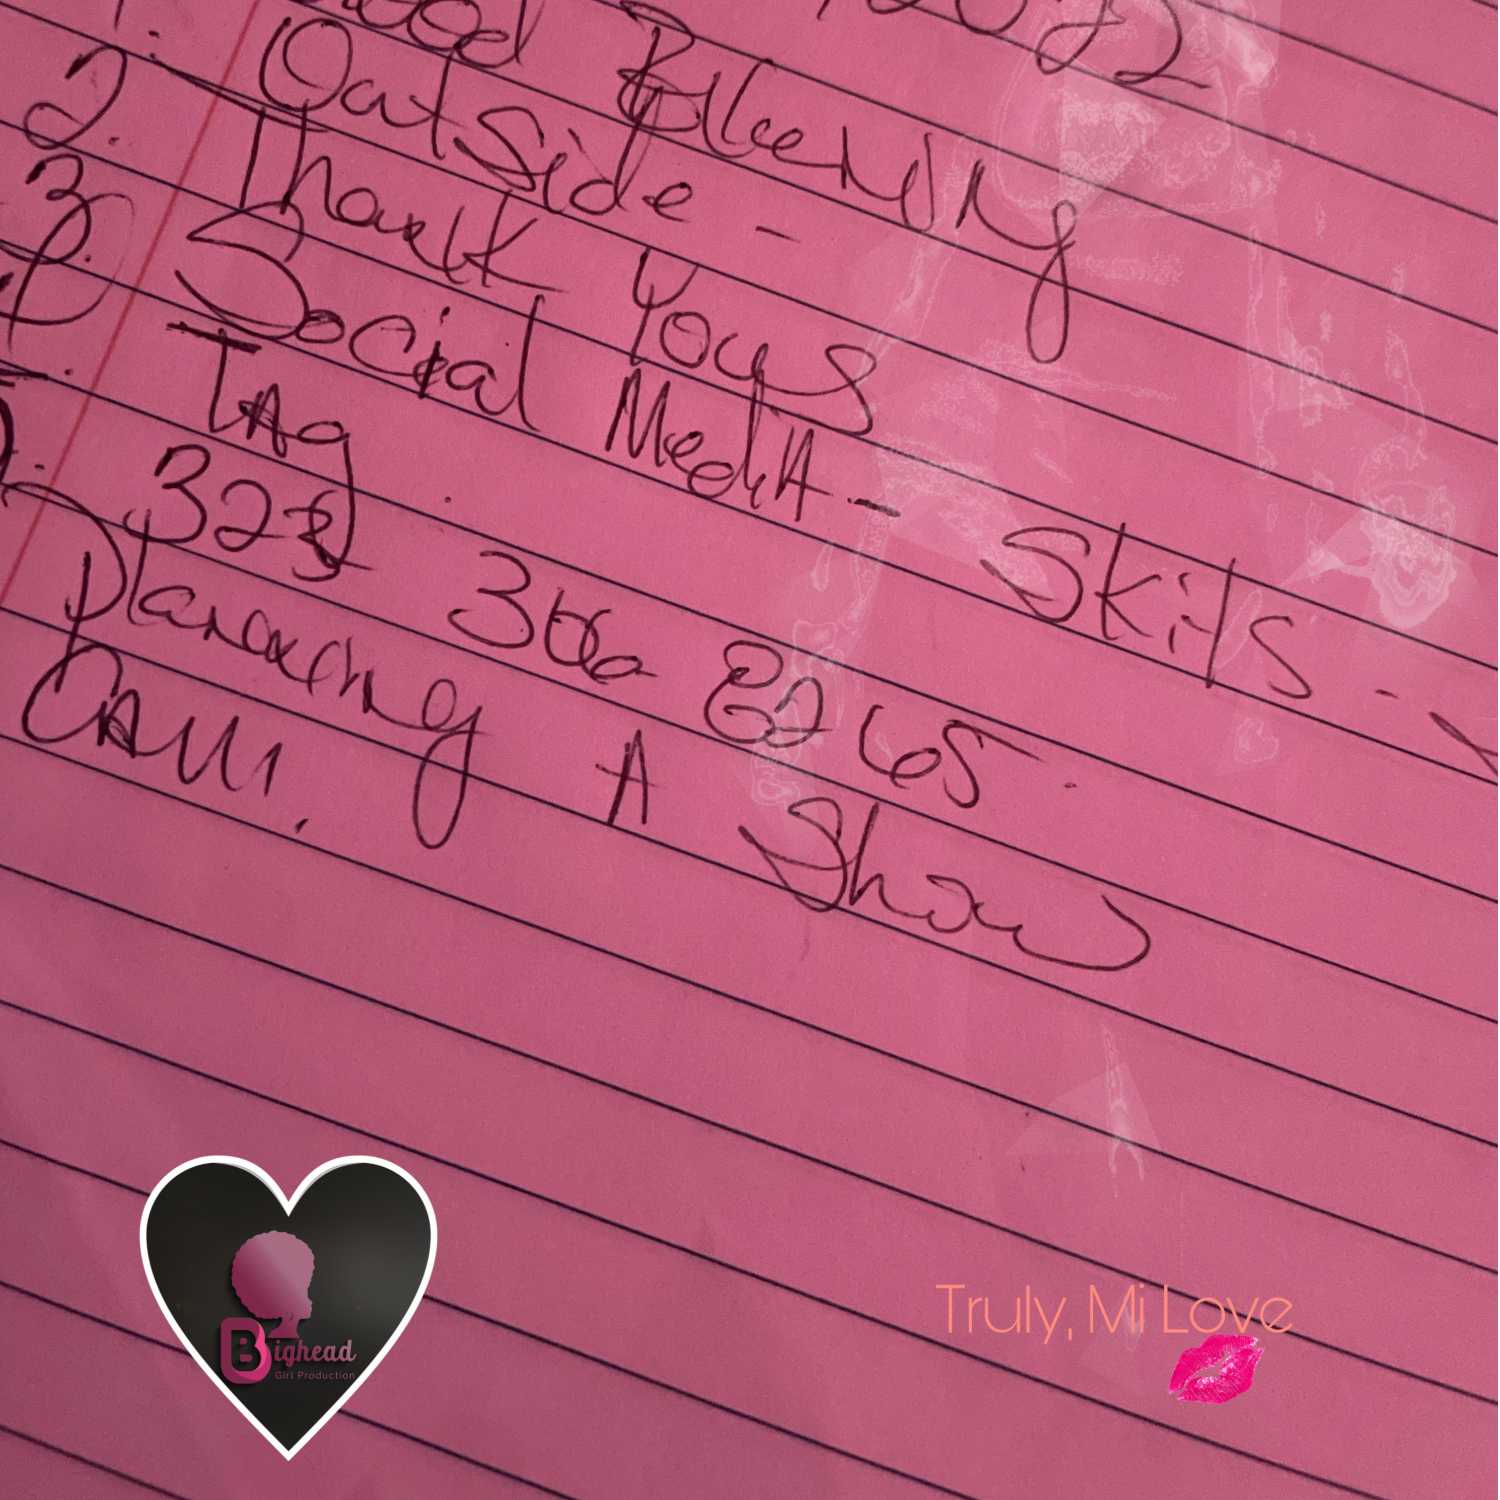 2022
1. Blleering
2. Outside -
3. Thank Yous
4. Social Media - Skits -
5. Tag
323 366 8265.
Planning A Show
Call.
Bighead
Girl Production
Truly, Mi Love